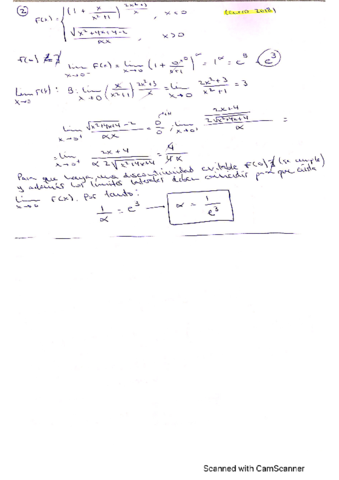 ② F(x) = { (1 + x/(x²+1))^((2x²+3)/x), x < 0
(√(x²+4x+4) - 2)/(αx), x > 0
F(0) ∄ lim x→0⁻ F(x) = lim x→0⁻ (1 + x/(x²+1))^∞ = 1^∞ = e^B = e³
B: lim x→0 (x/(x²+1)) · (2x²+3)/x = lim x→0 (2x²+3)/(x²+1) = 3
lim x→0⁺ (√(x²+4x+4) - 2)/(αx) = 0/0; lim x→0⁺ ((2x+4)/(2√(x²+4x+4)))/α =
= lim x→0⁺ (2x+4)/(α 2√(x²+4x+4)) = 4/(4α)
Para que haya una discontinuidad evitable F(0) ∄ (se cumple)
y además los límites laterales deben coincidir para que exista
lim x→0 F(x). Por tanto:
1/α = e³ → α = 1/e³
Scanned with CamScanner